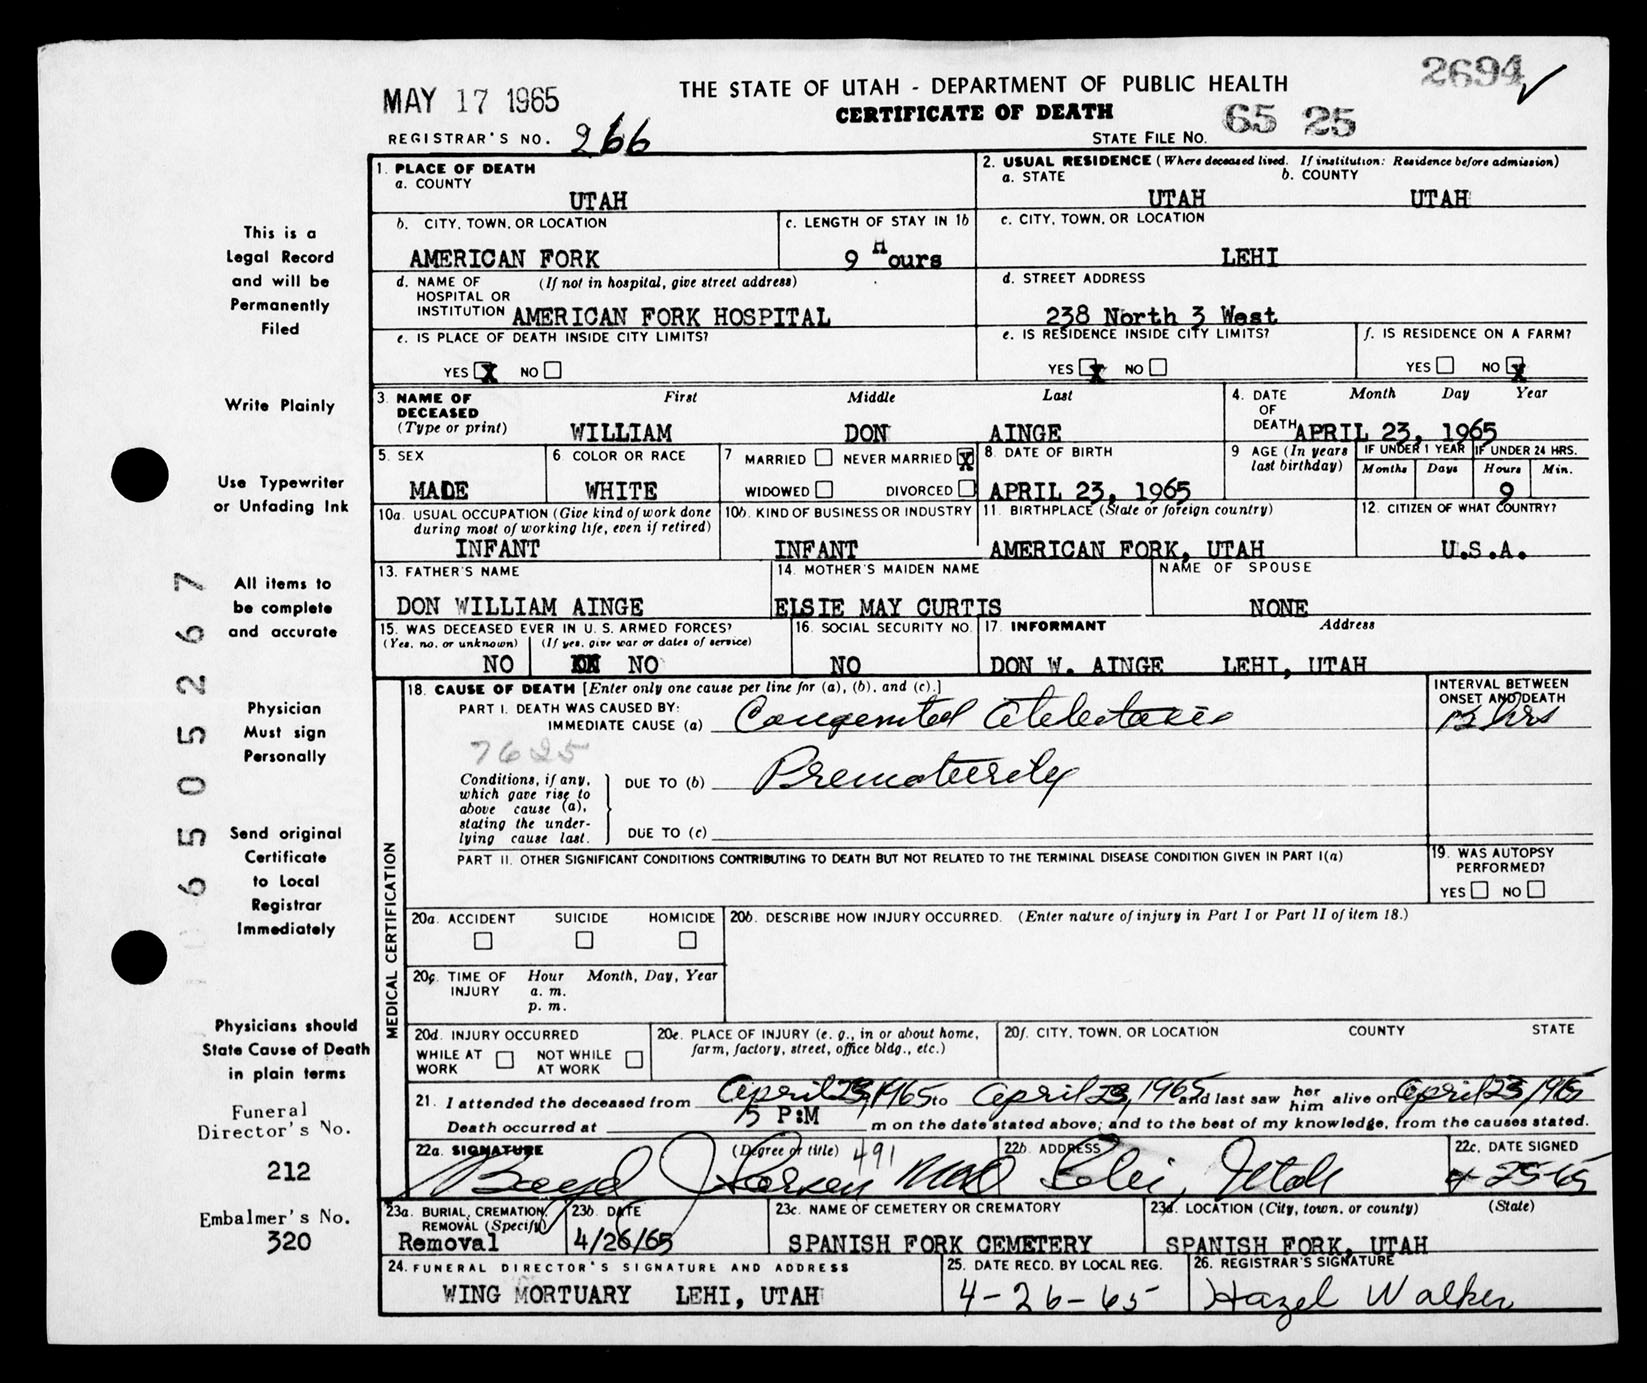 MAY 17 1965
THE STATE OF UTAH - DEPARTMENT OF PUBLIC HEALTH
2694 ✓
CERTIFICATE OF DEATH
REGISTRAR'S NO. 266
STATE FILE NO. 65 25
1. PLACE OF DEATH
a. COUNTY
UTAH
2. USUAL RESIDENCE (Where deceased lived. If institution: Residence before admission)
a. STATE b. COUNTY
UTAH UTAH
b. CITY, TOWN, OR LOCATION
AMERICAN FORK
c. LENGTH OF STAY IN 1b
9 Hours
c. CITY, TOWN, OR LOCATION
LEHI
d. NAME OF (If not in hospital, give street address)
HOSPITAL OR
INSTITUTION AMERICAN FORK HOSPITAL
d. STREET ADDRESS
238 North 3 West
e. IS PLACE OF DEATH INSIDE CITY LIMITS?
YES X NO
e. IS RESIDENCE INSIDE CITY LIMITS?
YES X NO
f. IS RESIDENCE ON A FARM?
YES NO X
3. NAME OF DECEASED (Type or print)
First Middle Last
WILLIAM DON AINGE
4. DATE OF DEATH Month Day Year
APRIL 23, 1965
5. SEX
MADE
6 COLOR OR RACE
WHITE
7 MARRIED NEVER MARRIED X
WIDOWED DIVORCED
8. DATE OF BIRTH
APRIL 23, 1965
9 AGE (In years last birthday)
IF UNDER 1 YEAR IF UNDER 24 HRS.
Months Days Hours Min.
9
10a. USUAL OCCUPATION (Give kind of work done
during most of working life, even if retired)
INFANT
10b. KIND OF BUSINESS OR INDUSTRY
INFANT
11. BIRTHPLACE (State or foreign country)
AMERICAN FORK, UTAH
12. CITIZEN OF WHAT COUNTRY?
U.S.A.
13. FATHER'S NAME
DON WILLIAM AINGE
14. MOTHER'S MAIDEN NAME
ELSIE MAY CURTIS
NAME OF SPOUSE
NONE
15. WAS DECEASED EVER IN U. S. ARMED FORCES?
(Yes, no, or unknown) (If yes, give war or dates of service)
NO NO
16. SOCIAL SECURITY NO.
NO
17. INFORMANT Address
DON W. AINGE LEHI, UTAH
MEDICAL CERTIFICATION
18. CAUSE OF DEATH [Enter only one cause per line for (a), (b), and (c).]
INTERVAL BETWEEN
ONSET AND DEATH
PART I. DEATH WAS CAUSED BY:
IMMEDIATE CAUSE (a) Congenital Atelectasis 12 hrs
7625
Conditions, if any,
which gave rise to
above cause (a),
stating the under-
lying cause last.
DUE TO (b) Prematurity
DUE TO (c)
PART II. OTHER SIGNIFICANT CONDITIONS CONTRIBUTING TO DEATH BUT NOT RELATED TO THE TERMINAL DISEASE CONDITION GIVEN IN PART I(a)
19. WAS AUTOPSY
PERFORMED?
YES NO
20a. ACCIDENT SUICIDE HOMICIDE
20b. DESCRIBE HOW INJURY OCCURRED. (Enter nature of injury in Part I or Part II of item 18.)
20c. TIME OF INJURY Hour Month, Day, Year
a. m.
p. m.
20d. INJURY OCCURRED
WHILE AT WORK NOT WHILE AT WORK
20e. PLACE OF INJURY (e. g., in or about home,
farm, factory, street, office bldg., etc.)
20f. CITY, TOWN, OR LOCATION COUNTY STATE
21. I attended the deceased from April 23, 1965 to April 23, 1965 and last saw her him alive on April 23, 1965
Death occurred at 5 P:M m on the date stated above; and to the best of my knowledge, from the causes stated.
22a. SIGNATURE (Degree or title) 491
Boyd J Larsen MD
22b. ADDRESS
Lehi, Utah
22c. DATE SIGNED
4-25-65
23a. BURIAL, CREMATION, REMOVAL (Specify)
Removal
23b. DATE
4/26/65
23c. NAME OF CEMETERY OR CREMATORY
SPANISH FORK CEMETERY
23d. LOCATION (City, town, or county) (State)
SPANISH FORK, UTAH
24. FUNERAL DIRECTOR'S SIGNATURE AND ADDRESS
WING MORTUARY LEHI, UTAH
25. DATE RECD. BY LOCAL REG.
4-26-65
26. REGISTRAR'S SIGNATURE
Hazel Walker
This is a
Legal Record
and will be
Permanently
Filed
Write Plainly
Use Typewriter
or Unfading Ink
All items to
be complete
and accurate
Physician
Must sign
Personally
Send original
Certificate
to Local
Registrar
Immediately
Physicians should
State Cause of Death
in plain terms
Funeral
Director's No.
212
Embalmer's No.
320
6505267